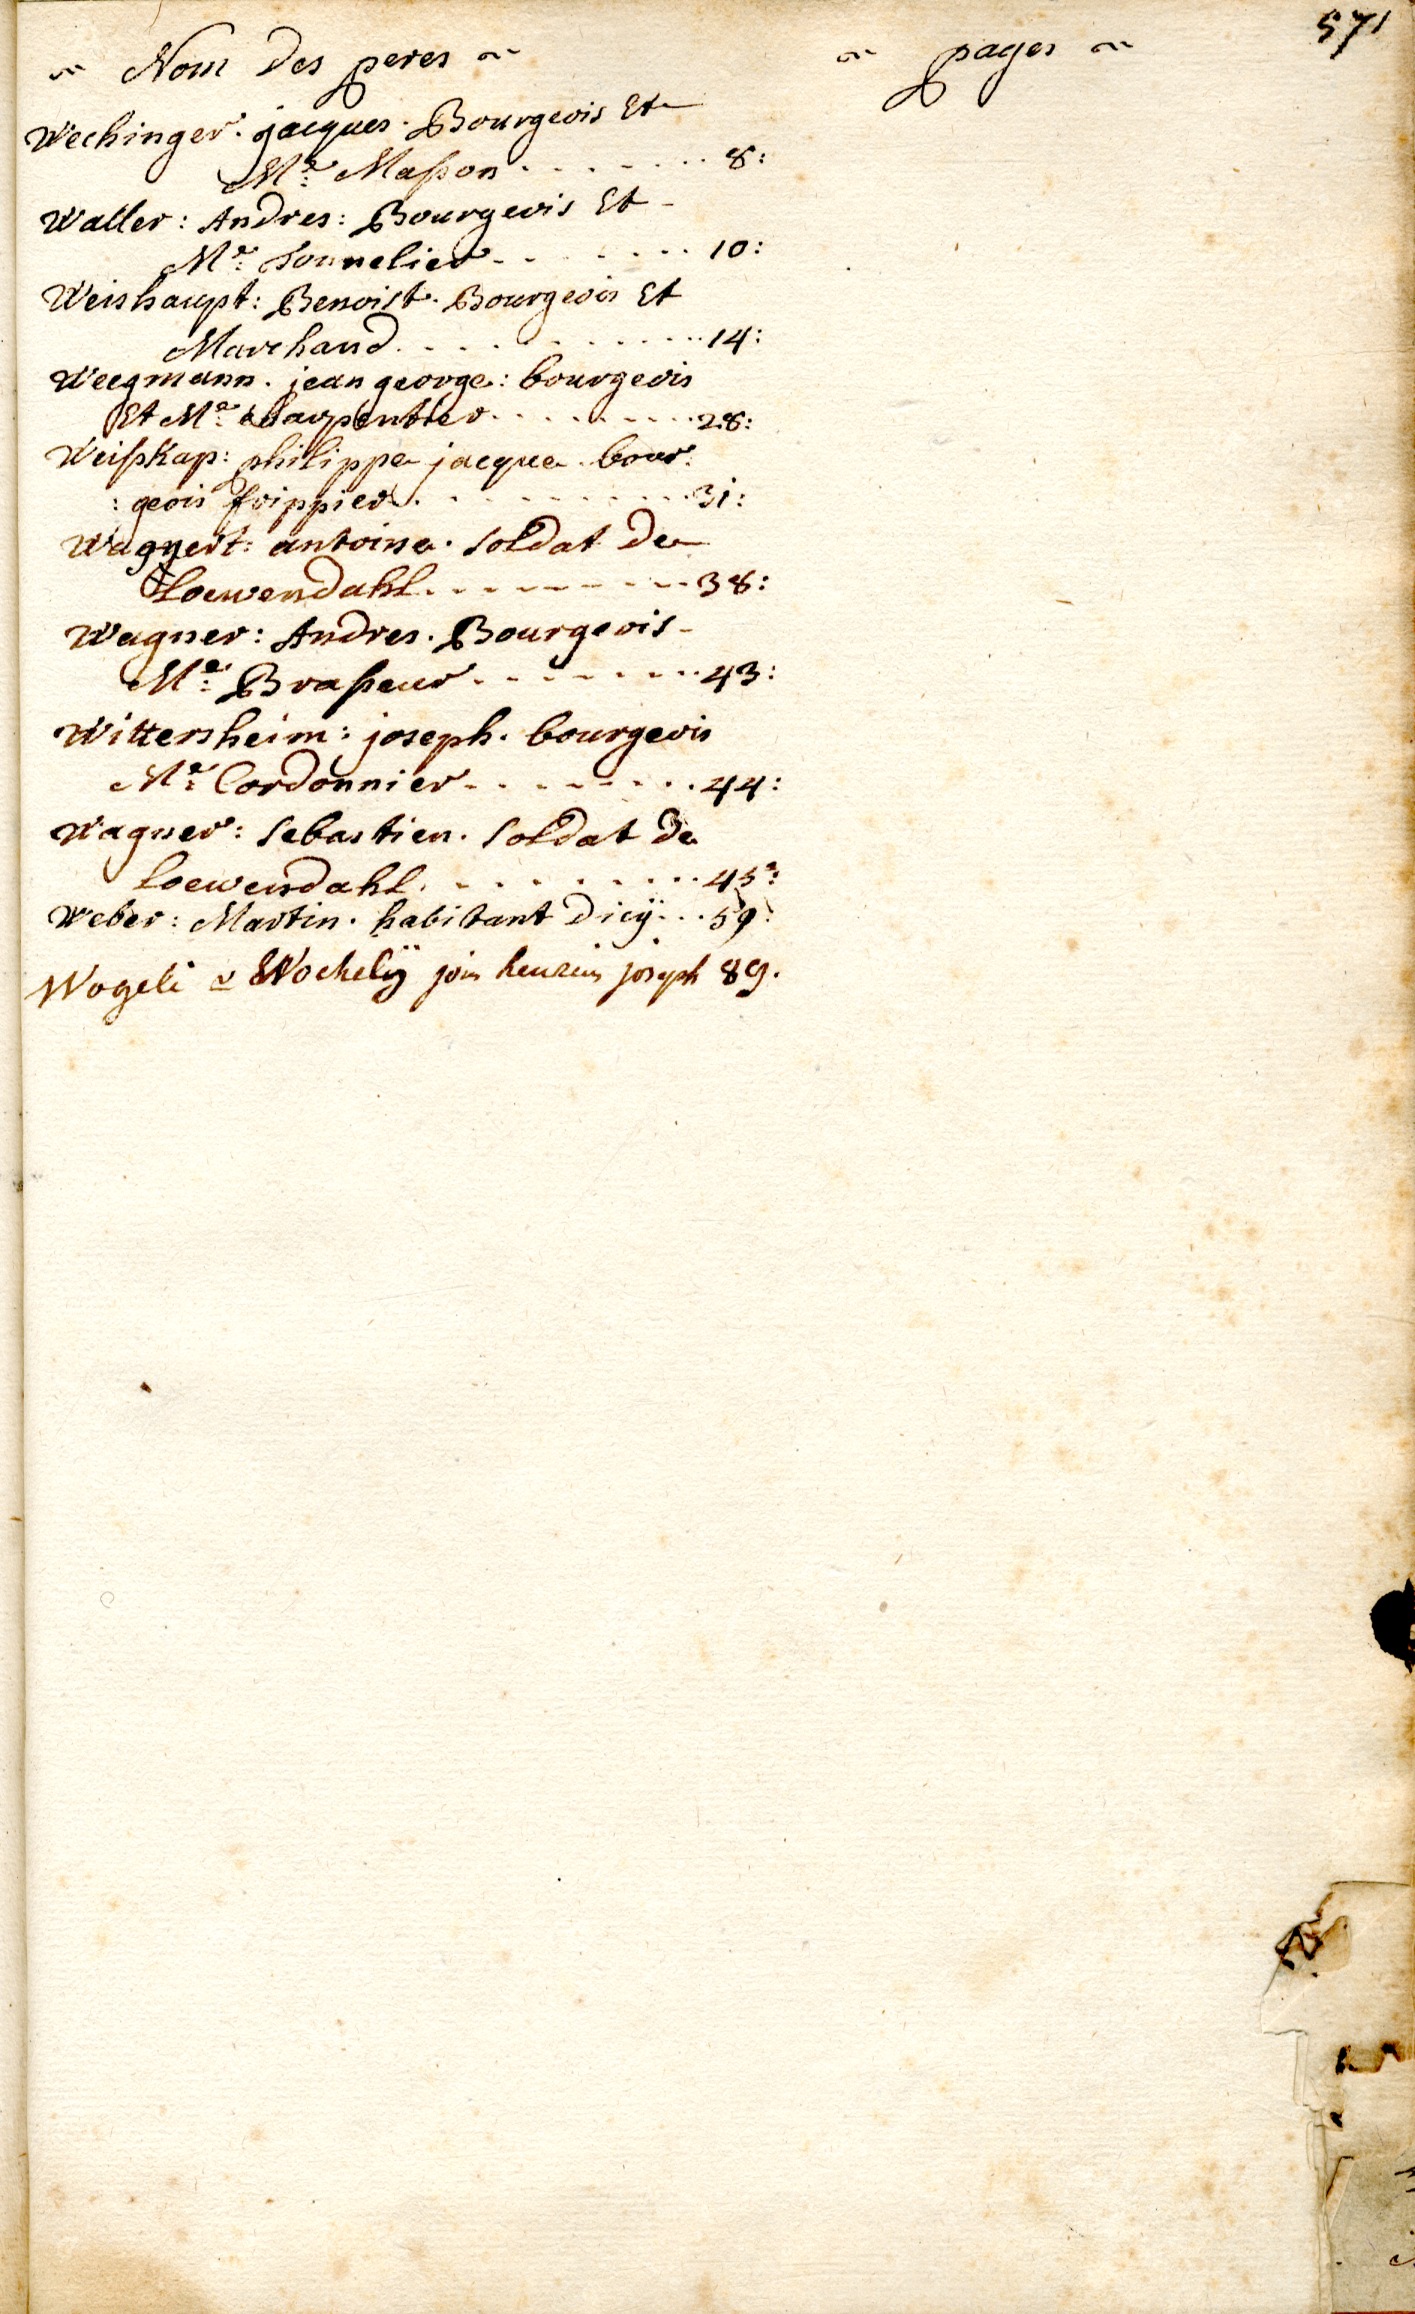 571
~ Nom Des peres ~ ~ pages ~
Wechinger. jacques. Bourgeois Et
Mr: Masson. . . . . . . 8:
Waller: Andres: Bourgeois Et -
Mr: Tonnelier. . . . . . . 10:
Weishaupt: Benoist. Bourgeois Et
Marchand. . . . . . . . . . . 14:
Weegmann. jean george: bourgeois
Et Mr: Charpentier. . . . . . . . . 28:
Weisskap: philippe jacque. bour:
: geois frippier. . . . . . . . . . . 31:
Wagnert: antoine. Soldat De
Loewendahl. - - - - - - - - 38:
Wagner: Andres. Bourgeois -
Mr: Brasseur. - - - - - - . . 43:
Wittersheim: joseph. bourgeois
Mr: Cordonnier. - . - - - . . . 44:
Wagner: Sebastien. Soldat De
Loewendahl. . . . . . . . . . 45:
Weber: Martin. habitant Dicÿ. . . 59:
Wogeli Wochelÿ joseph 89.